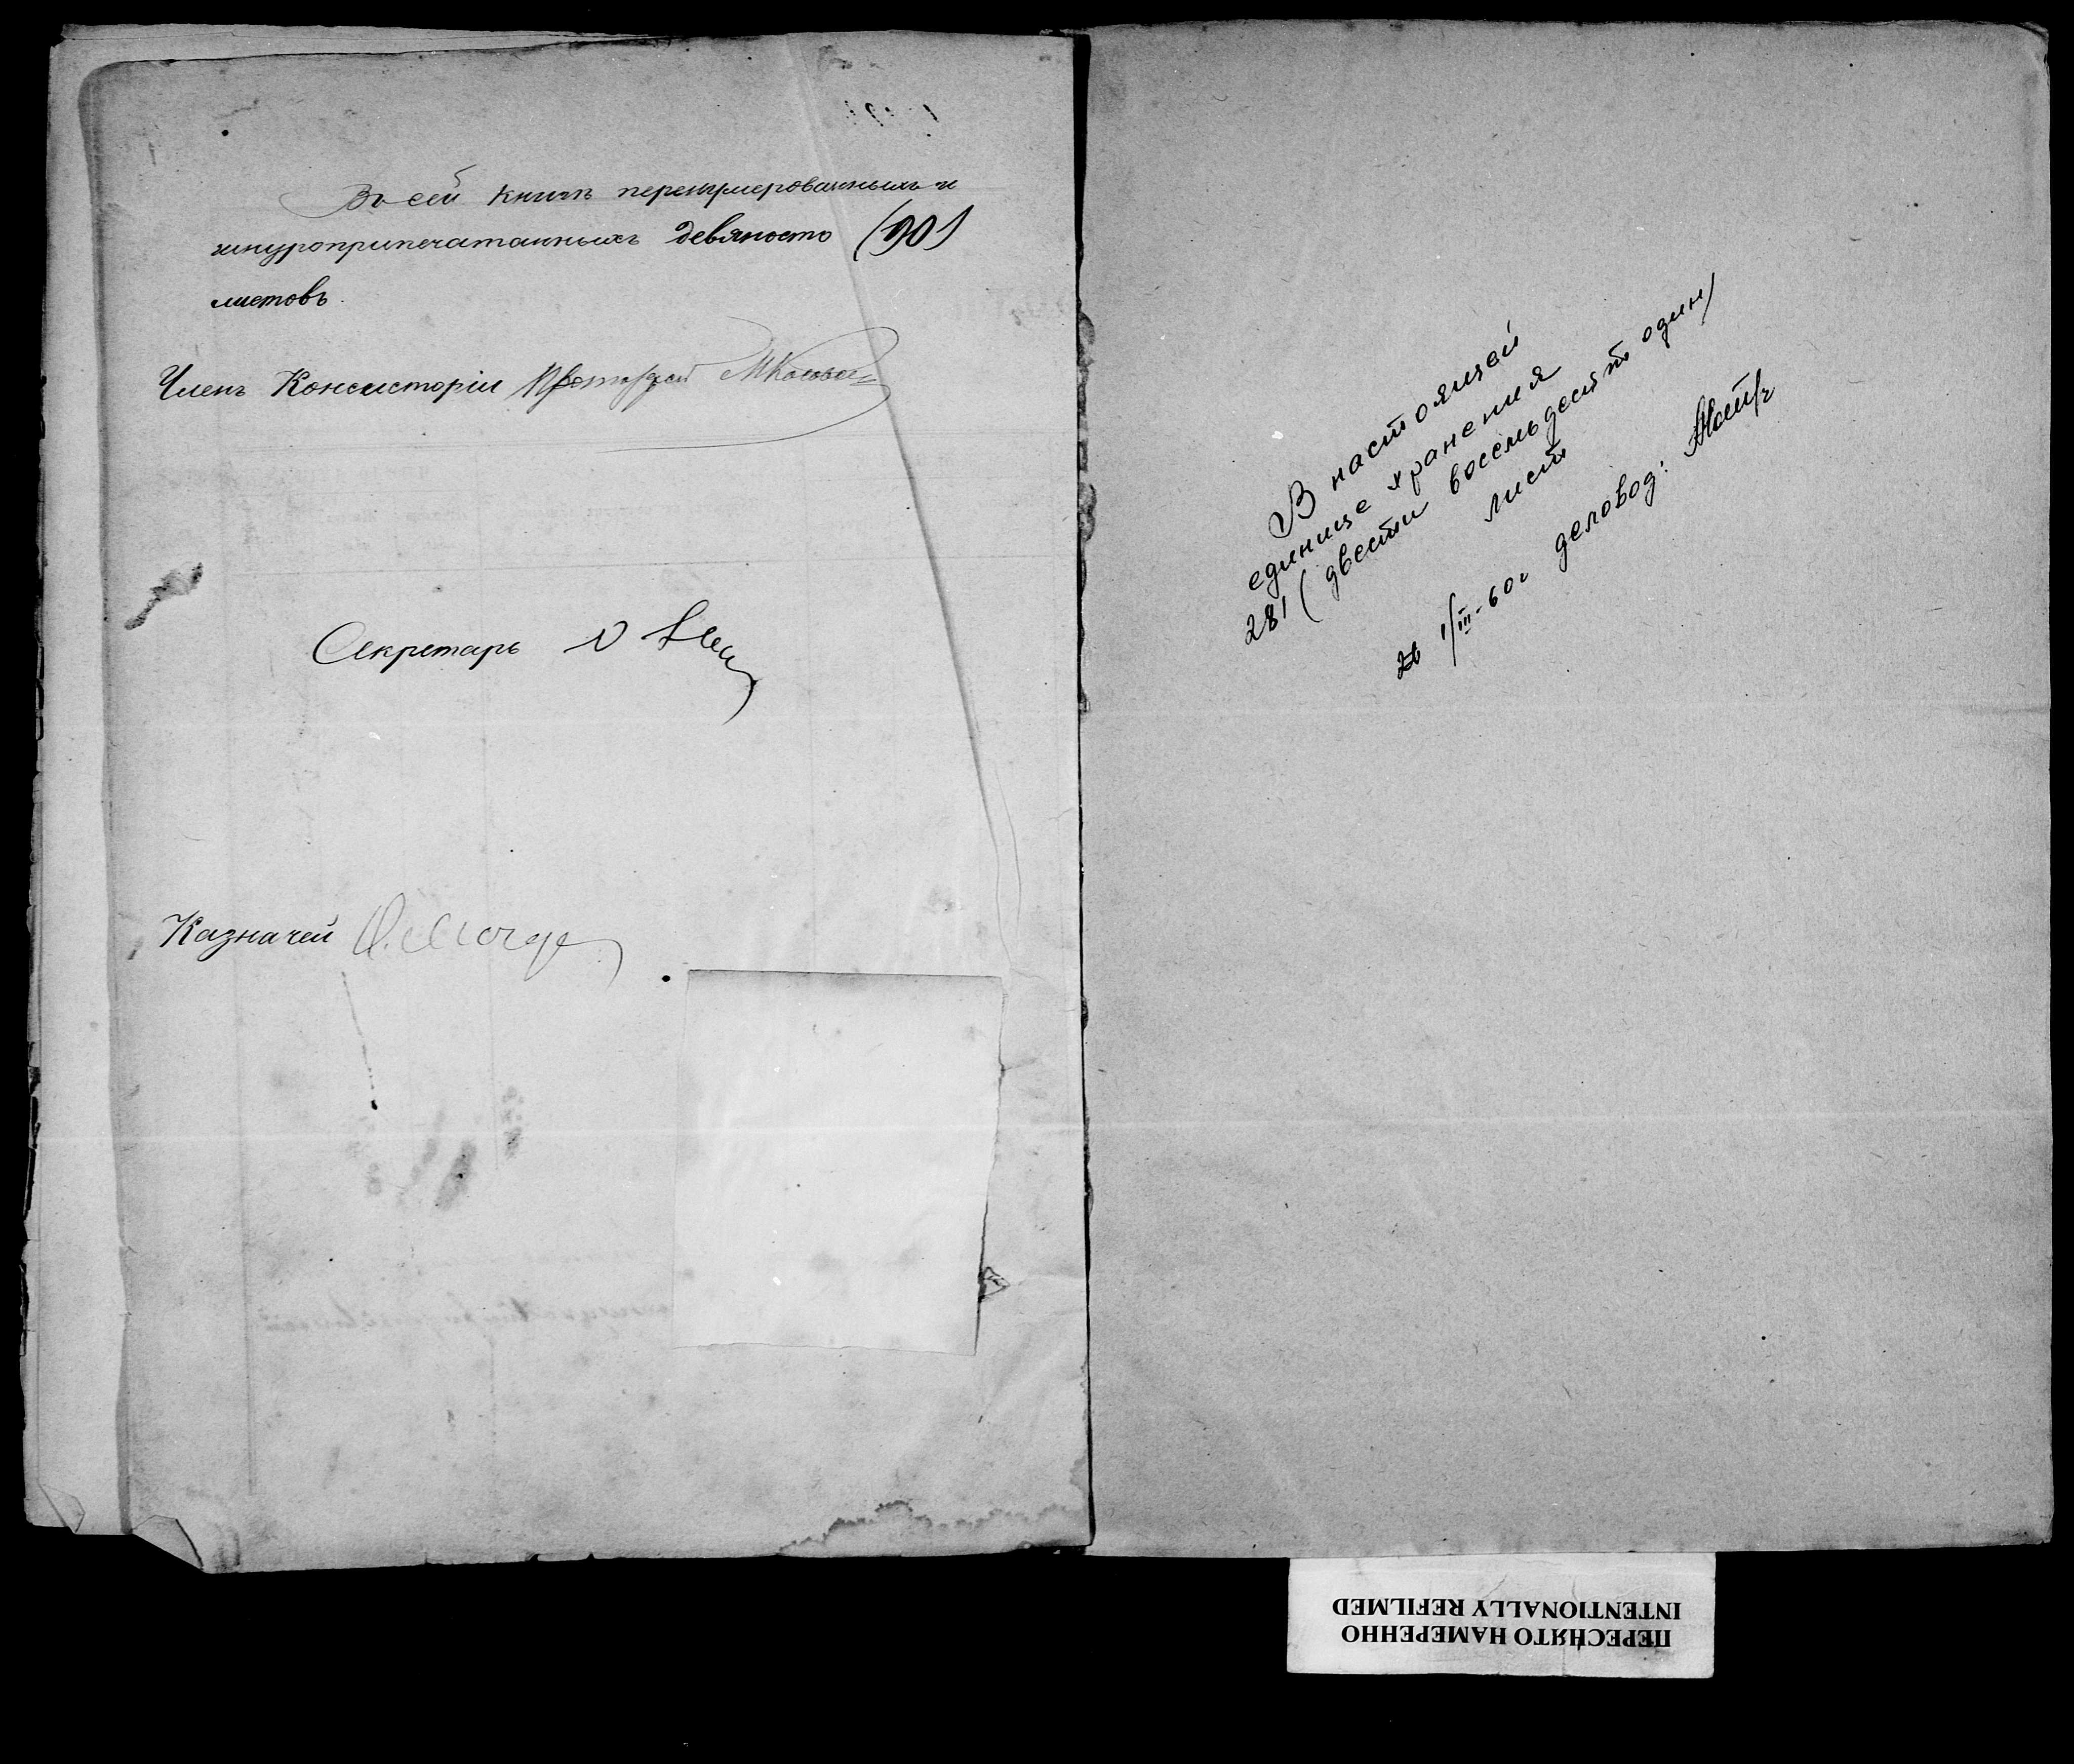 Въ сей книгѣ перенумерованныхъ и
шнуроприпечатанныхъ девяносто (90)
листовъ.
Членъ Консисторіи Протоіерей
Секретарь
Казначей
В настоящей
единице хранения
281 (двести восемьдесят один)
лист
1/III-60г деловод:
ПЕРЕСНЯТО НАМЕРЕННО
INTENTIONALLY REFILMED